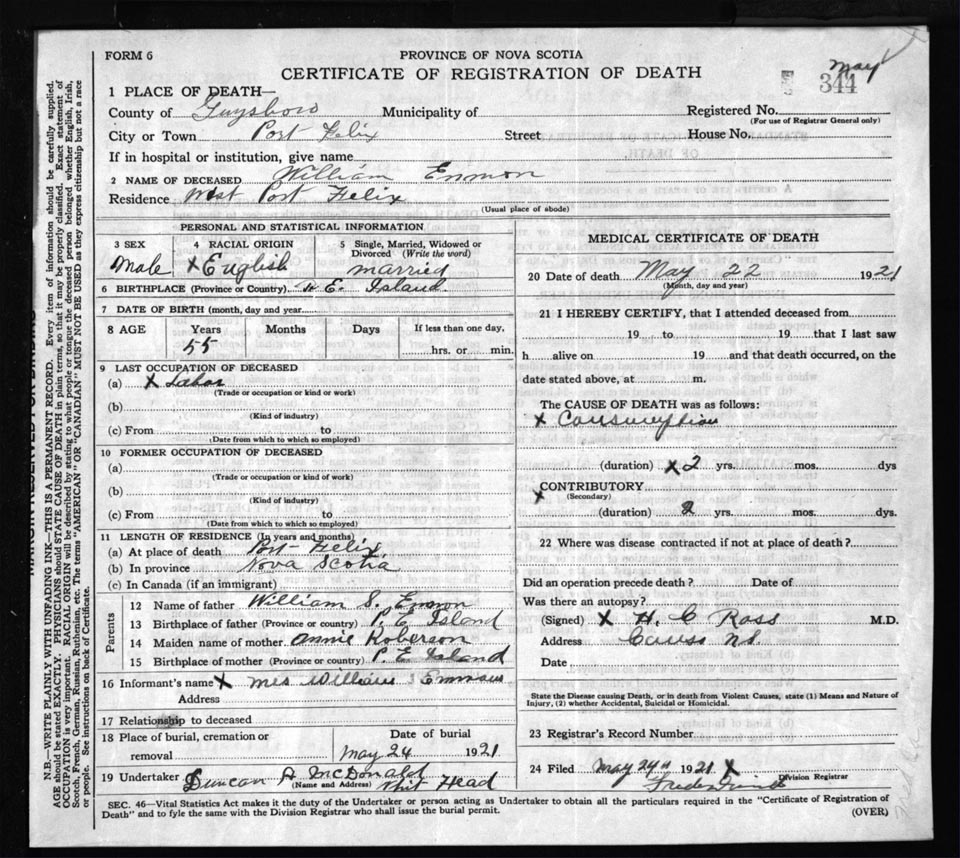 FORM 6
PROVINCE OF NOVA SCOTIA
CERTIFICATE OF REGISTRATION OF DEATH
May
344
1 PLACE OF DEATH—
County of Guysboro Municipality of Registered No.
(For use of Registrar General only)
City or Town Port Felix Street House No.
If in hospital or institution, give name
2 NAME OF DECEASED William Enmon
Residence West Port Felix
(Usual place of abode)
PERSONAL AND STATISTICAL INFORMATION
3 SEX 4 RACIAL ORIGIN 5 Single, Married, Widowed or Divorced (Write the word)
Male X English married
6 BIRTHPLACE (Province or Country) E. Island
7 DATE OF BIRTH (month, day and year)
8 AGE Years Months Days If less than one day,
55 hrs. or min.
9 LAST OCCUPATION OF DECEASED
(a) X Labor
(Trade or occupation or kind or work)
(b)
(Kind of industry)
(c) From to
(Date from which to which so employed)
10 FORMER OCCUPATION OF DECEASED
(a)
(Trade or occupation or kind of work)
(b)
(Kind of industry)
(c) From to
(Date from which to which so employed)
11 LENGTH OF RESIDENCE (In years and months)
(a) At place of death Port Felix
(b) In province Nova Scotia
(c) In Canada (if an immigrant)
Parents
12 Name of father William S. Enmon
13 Birthplace of father (Province or country) P. E. Island
14 Maiden name of mother Annie Roberson
15 Birthplace of mother (Province or country) P. E. Island
16 Informant's name X Mrs William
Address
17 Relationship to deceased
18 Place of burial, cremation or removal Date of burial
May 24 1921
19 Undertaker Duncan A McDonald
(Name and Address) Whit Head
MEDICAL CERTIFICATE OF DEATH
20 Date of death May 22 1921
(Month, day and year)
21 I HEREBY CERTIFY, that I attended deceased from
19 to 19 that I last saw
h alive on 19 and that death occurred, on the
date stated above, at m.
The CAUSE OF DEATH was as follows:
X Consumption
(duration) X 2 yrs. mos. dys
CONTRIBUTORY
X (Secondary)
(duration) 2 yrs. mos. dys
22 Where was disease contracted if not at place of death?
Did an operation precede death? Date of
Was there an autopsy?
(Signed) X H. C Ross M.D.
Address
Date
State the Disease causing Death, or in death from Violent Causes, state (1) Means and Nature of
Injury, (2) whether Accidental, Suicidal or Homicidal.
23 Registrar's Record Number
24 Filed May 24th 1921 X
Division Registrar
SEC. 46—Vital Statistics Act makes it the duty of the Undertaker or person acting as Undertaker to obtain all the particulars required in the "Certificate of Registration of
Death" and to fyle the same with the Division Registrar who shall issue the burial permit. (OVER)
MARGIN RESERVED FOR BINDING
N.B.—WRITE PLAINLY WITH UNFADING INK—THIS IS A PERMANENT RECORD. Every item of information should be carefully supplied.
AGE should be stated EXACTLY. PHYSICIANS should STATE CAUSE OF DEATH in plain terms, so that it may be properly classified. Exact statement of
OCCUPATION is very important. RACIAL ORIGIN will be described by stating to what people or tongue the deceased person belonged whether English, Irish,
Scotch, French, German, Russian, Ruthenian, etc. The terms "AMERICAN" or "CANADIAN" MUST NOT BE USED as they express citizenship but not a race
or people. See instructions on back of Certificate.